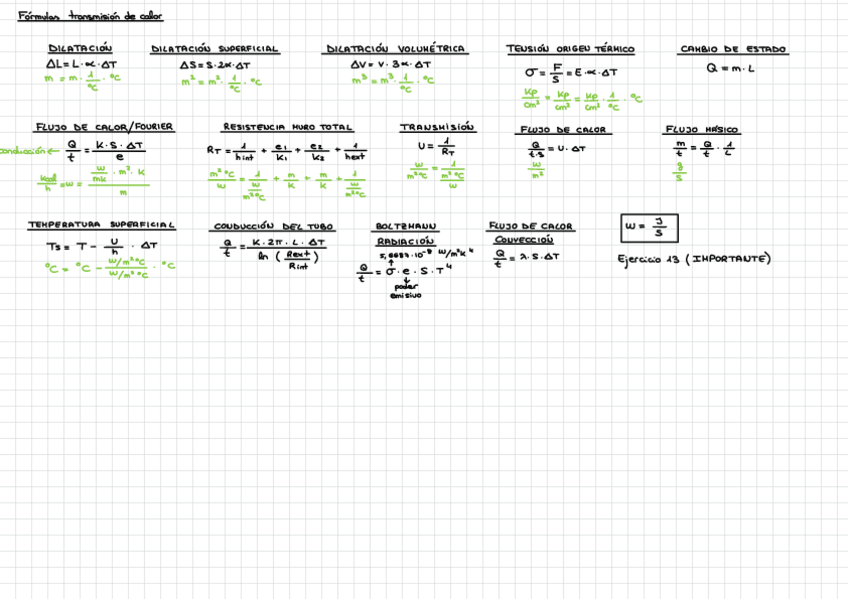 Fórmulas transmisión de calor
DILATACIÓN
ΔL = L · α · ΔT
m = m · 1/°C · °C
DILATACIÓN SUPERFICIAL
ΔS = S · 2α · ΔT
m² = m² · 1/°C · °C
DILATACIÓN VOLUMÉTRICA
ΔV = V · 3α · ΔT
m³ = m³ · 1/°C · °C
TENSIÓN ORIGEN TÉRMICO
σ = F/S = E · α · ΔT
Kp/cm² = Kp/cm² = Kp/cm² · 1/°C · °C
CAMBIO DE ESTADO
Q = m · L
FLUJO DE CALOR/FOURIER
conducción ← Q/t = K · S · ΔT / e
kcal/h = w = w/mk · m² · k / m
RESISTENCIA MURO TOTAL
RT = 1/hint + e1/K1 + e2/K2 + 1/hext
m² °C/w = 1/(w/m²°C) + m/k + m/k + 1/(w/m²°C)
TRANSMISIÓN
U = 1/RT
w/m²°C = 1/(m²°C/w)
FLUJO DE CALOR
Q/t·s = U · ΔT
w/m²
FLUJO MÁSICO
m/t = Q/t · 1/L
g/s
TEMPERATURA SUPERFICIAL
Ts = T - U/h · ΔT
°C = °C - w/m²°C / w/m²°C · °C
CONDUCCIÓN DEL TUBO
Q/t = K · 2π · L · ΔT / ln (Rext/Rint)
BOLTZMANN
RADIACIÓN
5,6687·10⁻⁸ w/m²k⁴
Q/t = σ · e · S · T⁴
poder
emisivo
FLUJO DE CALOR
CONVECCIÓN
Q/t = λ · S · ΔT
w = J/s
Ejercicio 13 (IMPORTANTE)